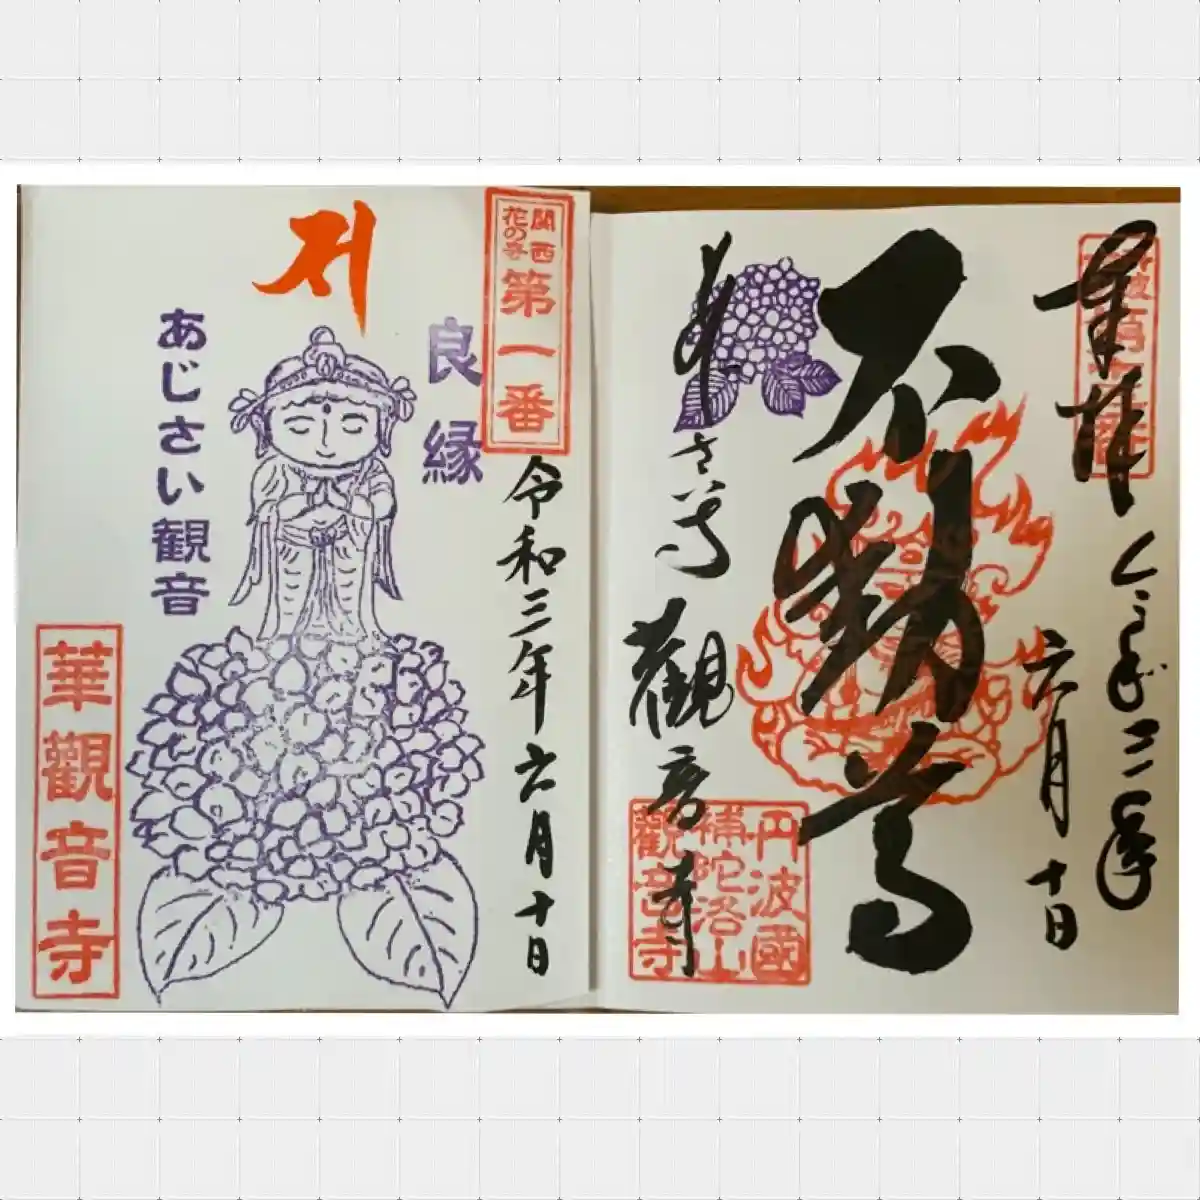 関西
花の寺
第一番
令和三年六月十日
良縁
あじさい観音
華觀音寺
奉拝
令和三年
六月十日
不動尊
あぢさい寺
觀音寺
丹波國
補陀洛山
觀音寺